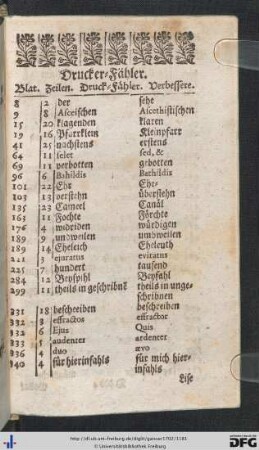 Drucker-Fähler.
Blat. Zeilen. Druck-Fähler. Verbessere.
8 2 der sehr
9 8 Asceischen Ascethistischen
15 20 klagenden klaren
19 16 Pfarrklein Kleinpfarr
41 25 nachstens erstens
64 11 selet sed, &
69 11 verbotten gebotten
96 6 Bahildis Bathildis
101 22 Ehr Ehr-
103 13 verstehn überstehn
135 23 Cameel Canäl
163 11 Fochte Förchte
176 4 widriden würdigen
189 9 undweilen umdweilen
189 14 Eheleich Eheleuth
221 3 ejuratus evitatus
225 7 hundert tausend
284 12 Beyspihl Beyfahl
299 11 theils in geschribnē theils in unge-
schribnen
331 18 beschreiben beschreiben
332 3 effractos effractor
332 6 Ejus Quis
333 1 audenter ardenter
336 4 duo ævo
340 4 für hierinfahls für mich hier-
infahls
Lise
http://dl.ub.uni-freiburg.de/diglit/gansser1702/1181
© Universitätsbibliothek Freiburg
Gefördert durch
DFG